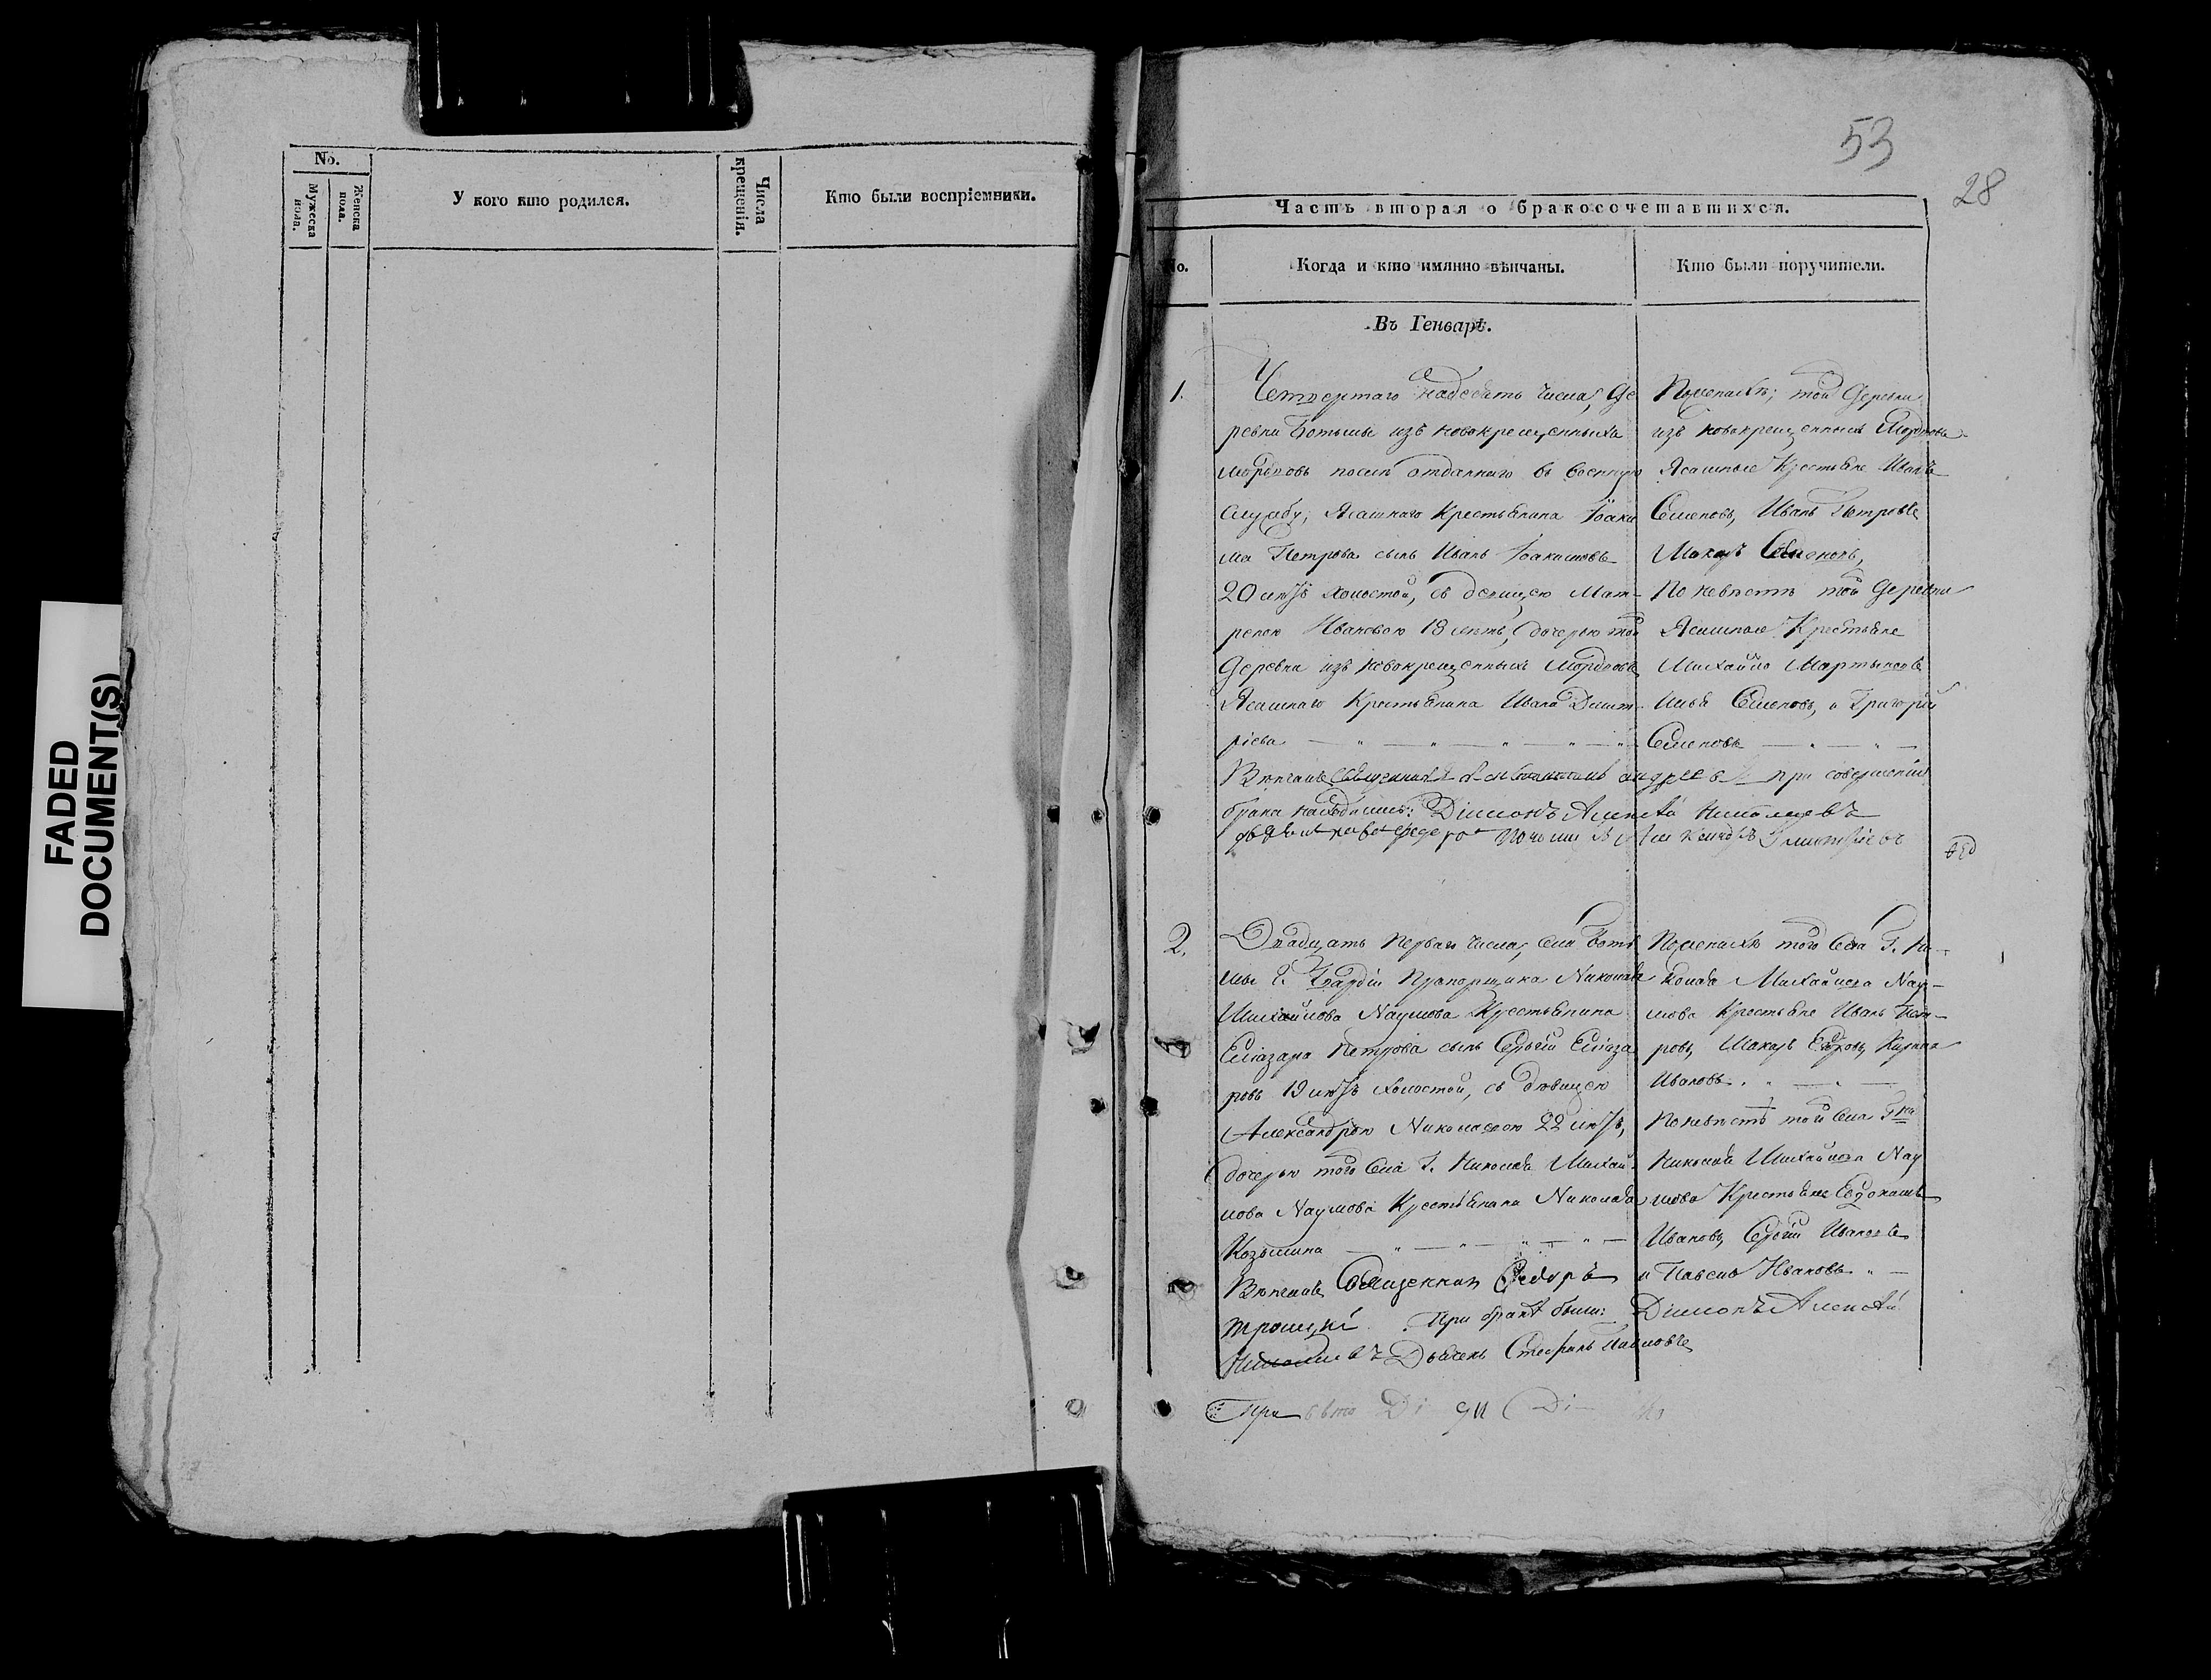 FADED
DOCUMENT(S)
No.
Мужеска пола.
Женска пола.
У кого кто родился.
Числа крещенія.
Кто были воспріемники.
53
28
Часть вторая о бракосочетавшихся.
No.
Когда и кто имянно вѣнчаны.
Кто были поручители.
Въ Генварѣ.
1.
Четвертаго надесять числа, Де
ревни Ботьмы изъ новокрещенныхъ
мордовъ послѣ отданнаго въ военную
службу, Ясашнаго Крестьянина Іоаки
ма Петрова сынъ Иванъ Іоакимовъ
20 лѣтъ холостой, съ девицею Мат-
реною Ивановою 18 лѣтъ, дочерью той
Деревни изъ новокрещенныхъ Мордовъ
Ясашнаго Крестьянина Ивана Димит-
ріева
Вѣнчалъ Священникъ Андреевъ при совершеніи
брака находились: Діаконъ Алексѣй Николаевъ
Дмитріевъ
По женихѣ; той Деревни
изъ новокрещенныхъ Мордовъ
Ясашные Крестьяне Иванъ
Семеновъ, Иванъ Петровъ
Макаръ Семеновъ,
По невѣстѣ той Деревни
Ясашные Крестьяне
Михайло Мартыновъ
Илья Семеновъ, и Григорій
Семеновъ
2.
Двадцать перваго числа, села Боть
мы Г. Гвардіи Прапорщика Николая
Михайлова Наумова Крестьянина
Елеазара Петрова сынъ Сергѣй Елеаза
ровъ 19 лѣтъ холостой, съ девицею
Александрою Николаевою 22 лѣтъ,
дочерью того села Г. Николая Михай-
лова Наумова Крестьянина Николая
Козьмина
Вѣнчалъ Священник Федоръ
Троицкій. При бракѣ были: Діаконъ Алексѣй
Николаевъ Дьячекъ Стефанъ Павловъ
По женихѣ того Села Г. Ни-
колая Михайлова Нау-
мова Крестьяне Иванъ Пет-
ровъ, Макаръ
Ивановъ.
По невѣстѣ того Села Гна
Николая Михайлова Нау
мова Крестьяне Евдокимъ
Ивановъ, Сергѣй Ивановъ
и Павелъ Ивановъ
При